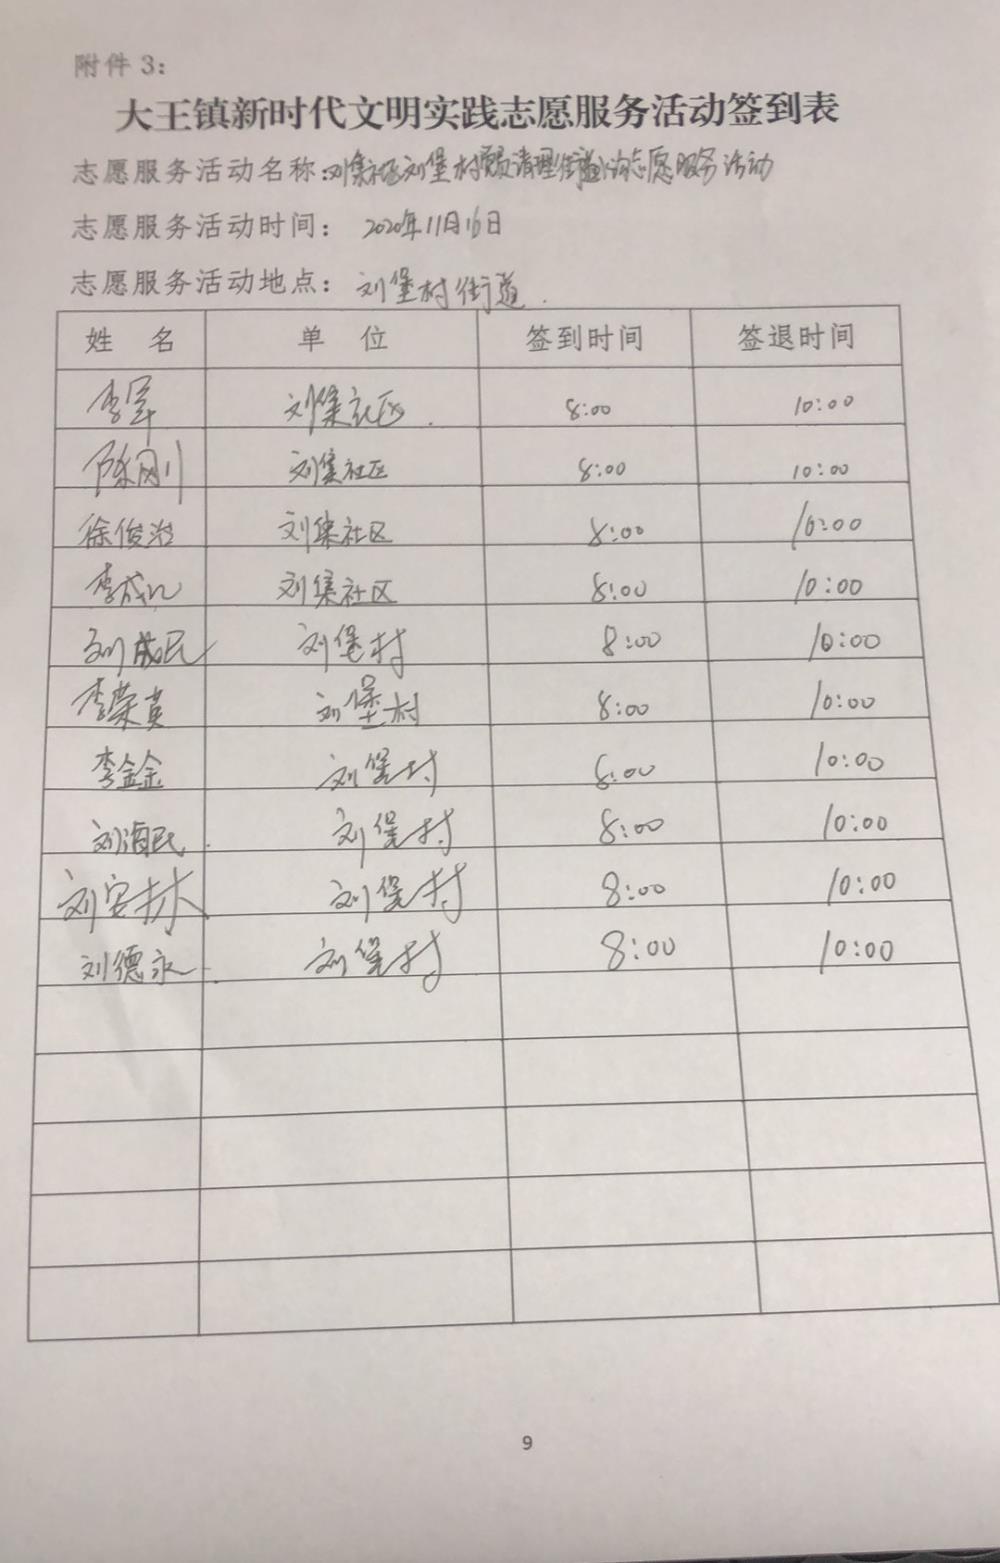 附件 3：
大王镇新时代文明实践志愿服务活动签到表
志愿服务活动名称：刘集社区刘堡村清理街道志愿服务活动
志愿服务活动时间： 2020年11月16日
志愿服务活动地点： 刘堡村街道.
姓 名 单 位 签到时间 签退时间
李军 刘集社区. 8:00 10:00
陈刚 刘集社区 8:00 10:00
徐俊治 刘集社区 8:00 10:00
李成 刘集社区 8:00 10:00
刘成民 刘堡村 8:00 10:00
李荣英 刘堡村 8:00 10:00
李鑫 刘堡村 8:00 10:00
刘海民 刘堡村 8:00 10:00
刘安林 刘堡村 8:00 10:00
刘德永 刘堡村 8:00 10:00
9